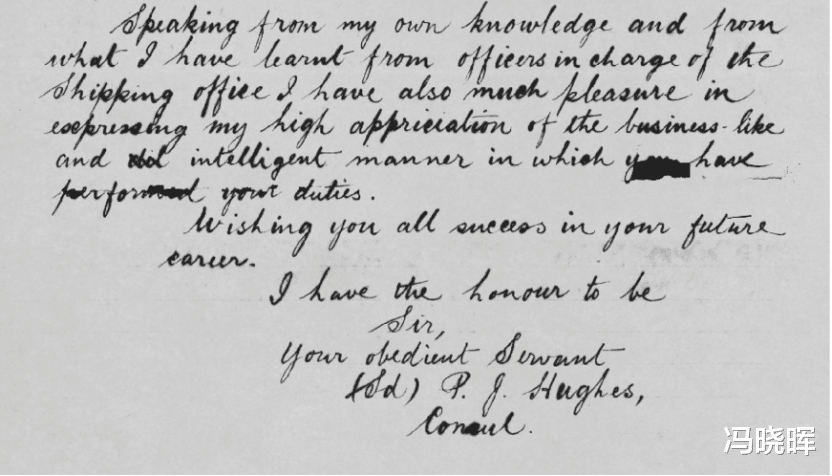 Speaking from my own knowledge and from
what I have learnt from officers in charge of the
Shipping office I have also much pleasure in
expressing my high appriciation of the business-like
and intelligent manner in which you have
performed your duties.
Wishing you all success in your future
career.
I have the honour to be
Sir,
Your obedient Servant
(Sd) P. J. Hughes,
Consul.
冯晓晖